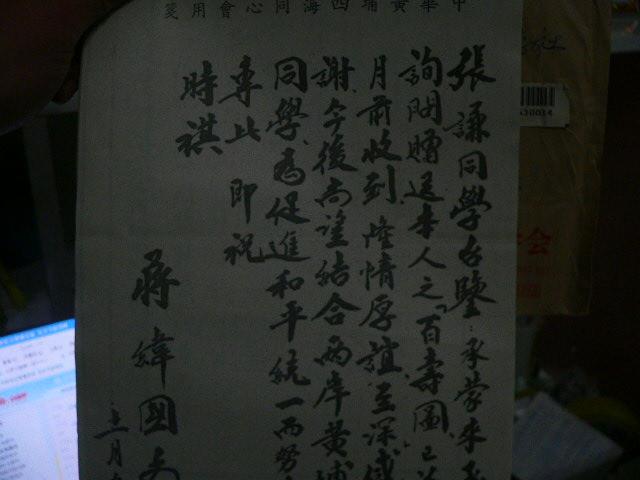 中華黃埔四海同心會用箋
張謙同學台鑒：承蒙來
詢問贈送本人之「百壽圖」已
月前收到，隆情厚誼，至深感
謝，今後尚望結合兩岸黃埔
同學，為促進和平統一而努
專此即祝
時祺
蔣緯國
月
30014
會